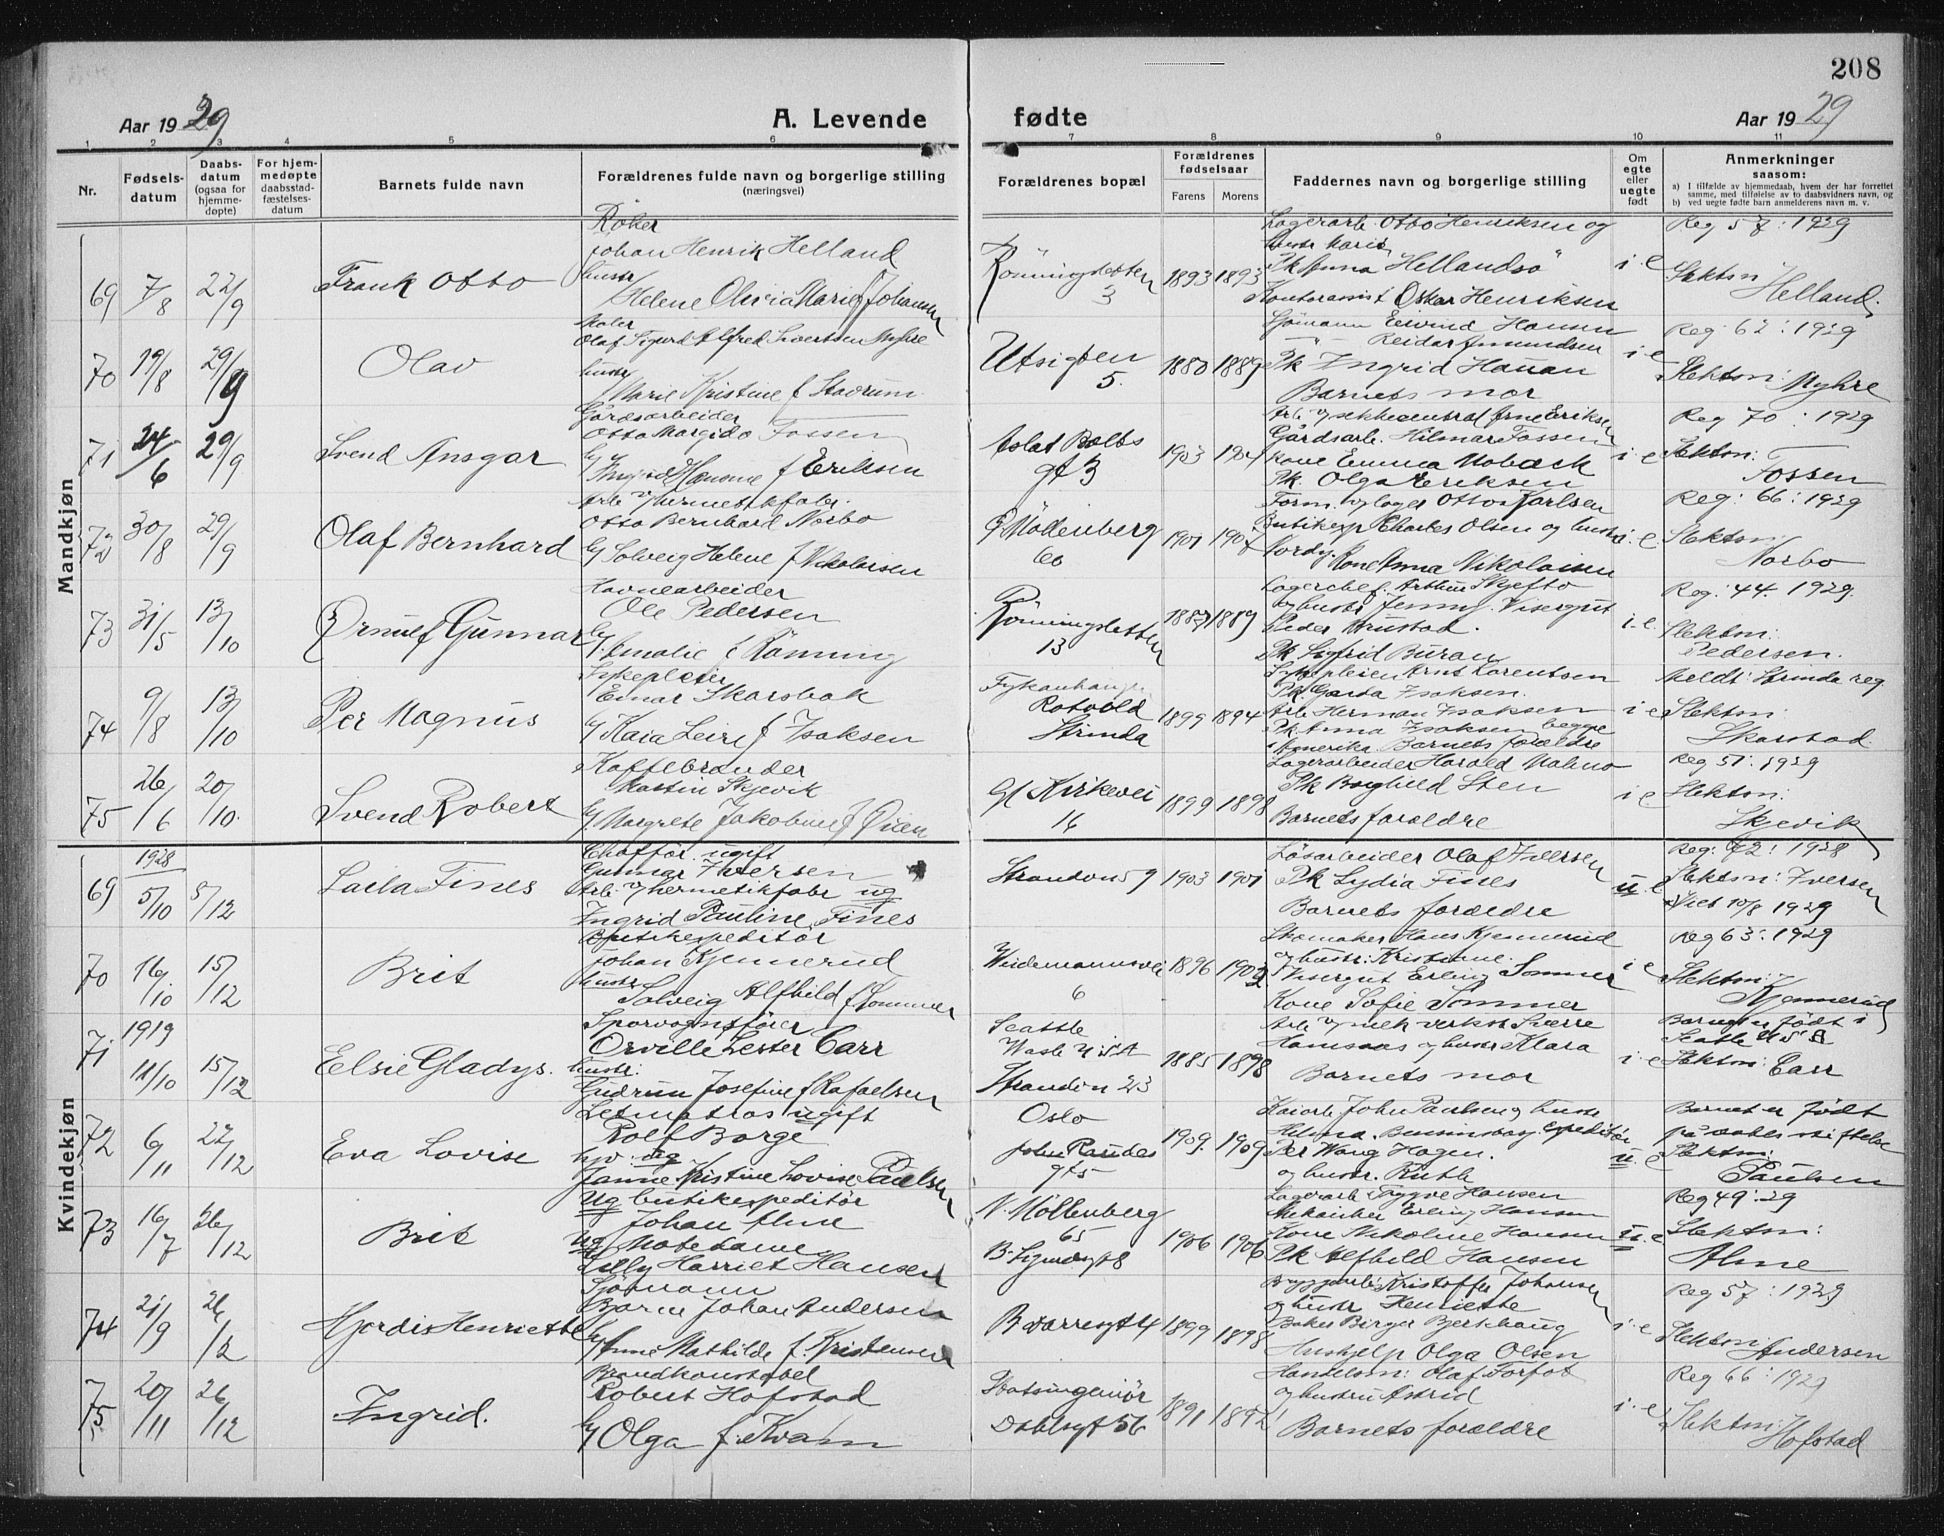 208
Aar 1929
A. Levende fødte
Aar 1929
1 2 3 4 5 6 7 8 9 10 11
Nr.
Fødselsdatum
Daabsdatum (ogsaa for hjemmedøpte)
For hjemmedøpte daabsstadfæstelsesdatum
Barnets fulde navn
Forældrenes fulde navn og borgerlige stilling (næringsvei)
Forældrenes bopæl
Forældrenes fødselsaar
Farens Morens
Faddernes navn og borgerlige stilling
Om egte eller uegte født
Anmerkninger saasom:
a) I tilfælde av hjemmedaab, hvem der har forrettet samme, med tilføielse av to daabsvidners navn, og
b) ved uegte født barn anmelderens navn m. v.
Mandkjøn
69 7/8 22/9 Frank Otto
Røker
Johan Henrik Helland
hustr
Helene Olivia Marie f Johansen
3
1893 1893
Lagerarb. Otto Henriksen og
hustr Marie
Pk Anna Hellandsø
Kontorassist Oskar Henriksen
i e
Reg 57 : 1929
Slektsn: Helland.
70 19/8 29/9 Olav
Maler
Olaf Sigurd Alfred Sivertsen Myhre
hustr
Marie Kristine f Stavrum
Utsigten
5.
1880 1889
Sjømann Eivind Hansen
Reidar Amundsen
Pk Ingrid Hanan
Barnets mor
i e
Reg. 62 : 1929
Slektsn: Myhre
71 24/6 29/9 Svend Ansgar
Gårdsarbeider
Otto Margido Fossen
f Eriksen
Aslak Bolts
gt 3
1903
Arne Eriksen
Gårdsarb. Hilmar Fossen
kone Emma Moback
Pk. Olga Eriksen
i e
Reg 70 : 1929
Slektsn: Fossen
72 30/8 29/9 Olaf Bernhard
Arb v/hermetikfabr.
Otto Bernhard Norbo
Solveig Helene f Nikolaisen
Møllenberg
60
1901
Form. v/lager Otto Karlsen
Butikeksp Charles Olsen og hustr
Nordy. Kone Anna Nikolaisen
i. e
Reg: 66 : 1929
Slektsn: Norbo
73 31/5 13/10 Gunnar
Havnearbeider
Ole Pedersen
Amalie f Rönning
Rönningsletten
13
1889
Lagerchef. Arthur Skjefto
og hustr Jenny. Visergut
Peder Krustad.
Pk Sigrid Buran
i. e.
Reg. 44. 1929.
Slektsn: Pedersen.
74 9/8 13/10 Per Magnus
Sykepleier
Einar Skarsbak
Kaia Leire f Isaksen
Rotvold
Strinda
1899 1894
Sykepleier Arnt Lorentsen
Pk Garda Isaksen.
Arb Herman Isaksen
Pk Anna Isaksen begge
i Amerika. Barnets forældre
i e
Meldt Strinda reg.
Slektsn: Skarstad
75 26/6 20/10. Svend Robert
Kaffebrænder
Martin Skjevik
Margrete Jakobine f Öien
Gl Kirkevei
16
1899 1898
Lagerarbeider Harald Malmo
Pk Borghild Sten
Barnets forældre
i e
Reg 51 : 1929
Slektsn: Skjevik
Kvindekjøn
69 1928 5/10 5/12 Laila Fines
Chaffør. ugift
Gunnar Iversen
Arb. v/hermetikfabr ug
Ingrid Pauline Fines
Strandvn 59
1903 1901
Løsarbeider Olaf Iversen
Pk Lydia Fines
Barnets forældre
u e
Reg: 72 : 1928
Slektsn: Iversen
Viet 10/8 1929
70 16/10 15/12 Brit
Butikekspeditör
Johan Kjennerud
hustr
Solveig Alfhild f Sommer
Weidemannsvei
6
1896 1902
Skomaker Hans Kjennerud
og hustr: Kristiane.
Visergut Erling Sommer
Kone Sofie Sommer
i e
Reg 63 : 1929
Slektsn: Kjennerud
71 1919 11/10 15/12 Elsie Gladys.
Sporvognsfører
Orville Lester Carr
hustr:
Gudrun Josefine f Rafaelsen
Seattle
Wash U.S.A
Strandvn 23
1885 1898
Arb v/mek verkst Sverre
Hansaas og hustr Klara
Barnets mor
i e
Barnet er født i
Seatle U S A
Slektsn: Carr
72 6/11 22/12 Eva Lovise
Letmatros ugift
Rolf Borge
ug
Janne Kristine Lovise Paulsen
Oslo
1909. 1909
Kaiarb John Paulsen og hustr
Per Wang Hagen.
og hustr. Ruth
u. e
Barnet er født
Slektsn: Paulsen
73 16/7 26/12 Brit
ug butikekspeditör
Johan Alme
ug Motedame
Lilly Harriet Hansen
N. Möllenberg
65
1906 1906
Lagerarb Trygve Hansen
Mekaniker Erling Hansen
Kone Nikoline Hansen
Pk Alfhild Hansen
u. e
Reg 49 : 29
Slektsn: Alme
74 21/9 26/12 Hjordis Henriette
Sjömann
Bjarne Johan Andersen
Anne Mathilde f. Kristensen
1899 1898
Kristoffer Johansen
og hustr Henriette
Baker Birger Bertshaug
Hushjelp Olga Olsen
i e
Reg 57 : 1929
Slektsn: Andersen
75 20/11 26/12 Ingrid.
Brandkonstabel
Robert Hofstad
Olga f. Kvam
Statsingeniör
Dahlsgt 56
1891 1892
Handelsm: Olaf Forfot
og hustru Astrid
Barnets forældre
i. e
Reg 66 : 1929
Slektsn: Hofstad